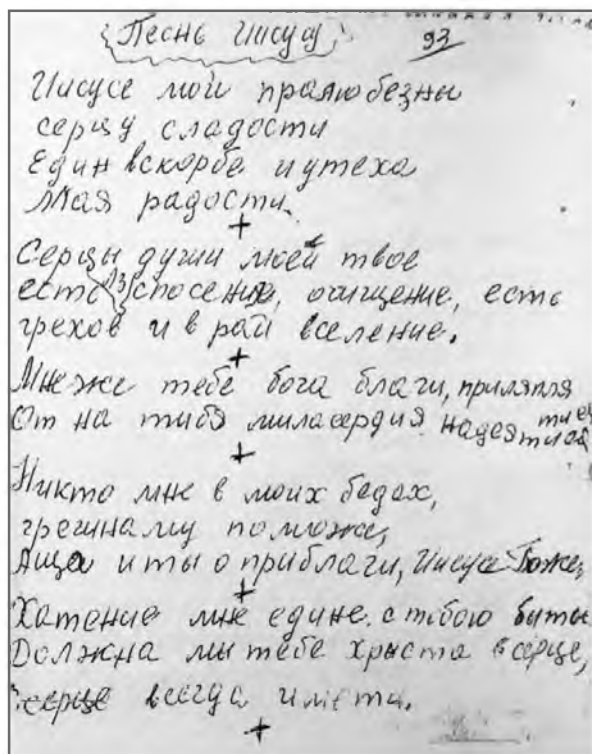 Песнь Иисусу
93
Иисусе мой пралюбезны
серцу сладости
Един вскорбе иутеха
Мая радости
+
Серцы души моей твое
есть спосение, очищение, есть
грехов и в рай вселение.
+
Мнеже тебе бога благи, приляпля
От на тибя миласердия надеят тиса
+
Никто мне в моих бедах,
грешналу поможе,
Аща иты о приблаги, Иисусе Боже,
+
Хатение мне едине. стобою быты
Должна мы тебе хрыста всерце,
серце всегда имети.
+